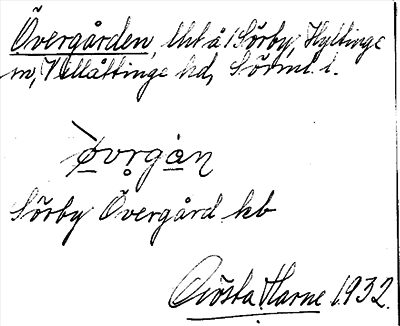 Övergården, lht å 1 Sörby, Hyltinge
sn, Villåttinge hd, Sörml. l.
øvrgån
Sörby Övergård kb
Gösta Harne 1932.